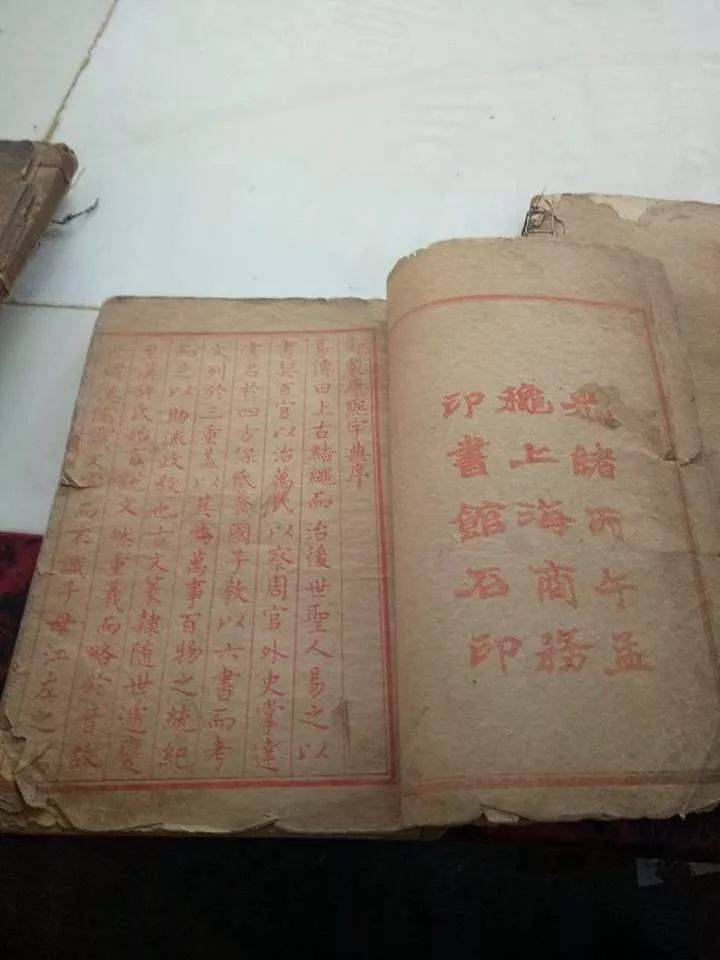 光緒丙午孟
穐上海商務
印書館石印
御製康熙字典序
易傳曰上古結繩而治後世聖人易之以
書契百官以治萬民以察周官外史掌達
書名於四方保氏養國子教以六書而考
文列於三重蓋以其為萬事百物之統紀
而足以助流政教也古文篆隸隨世遞變
至漢許氏始有說文然重義而略於音故
世謂漢儒識文而不識子母江左之